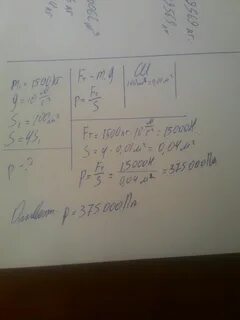 m₁ = 1500 кг
g = 10 м/с²
S₁ = 100 см²
S = 4S₁
p - ?
Fт = m₁g
p = Fт/S
СИ
100 см² = 0,01 м²
Fт = 1500 кг · 10 м/с² = 15000 Н
S = 4 · 0,01 м² = 0,04 м²
p = Fт/S = 15000 Н/0,04 м² = 375000 Па
Ответ: p = 375000 Па